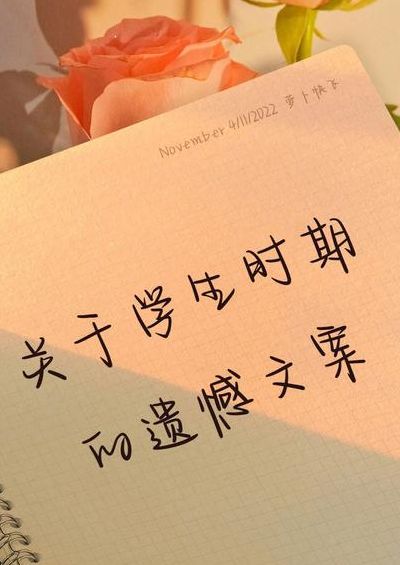 November 4/11/2022 萝卜快飞
关于学生时期
的遗憾文案